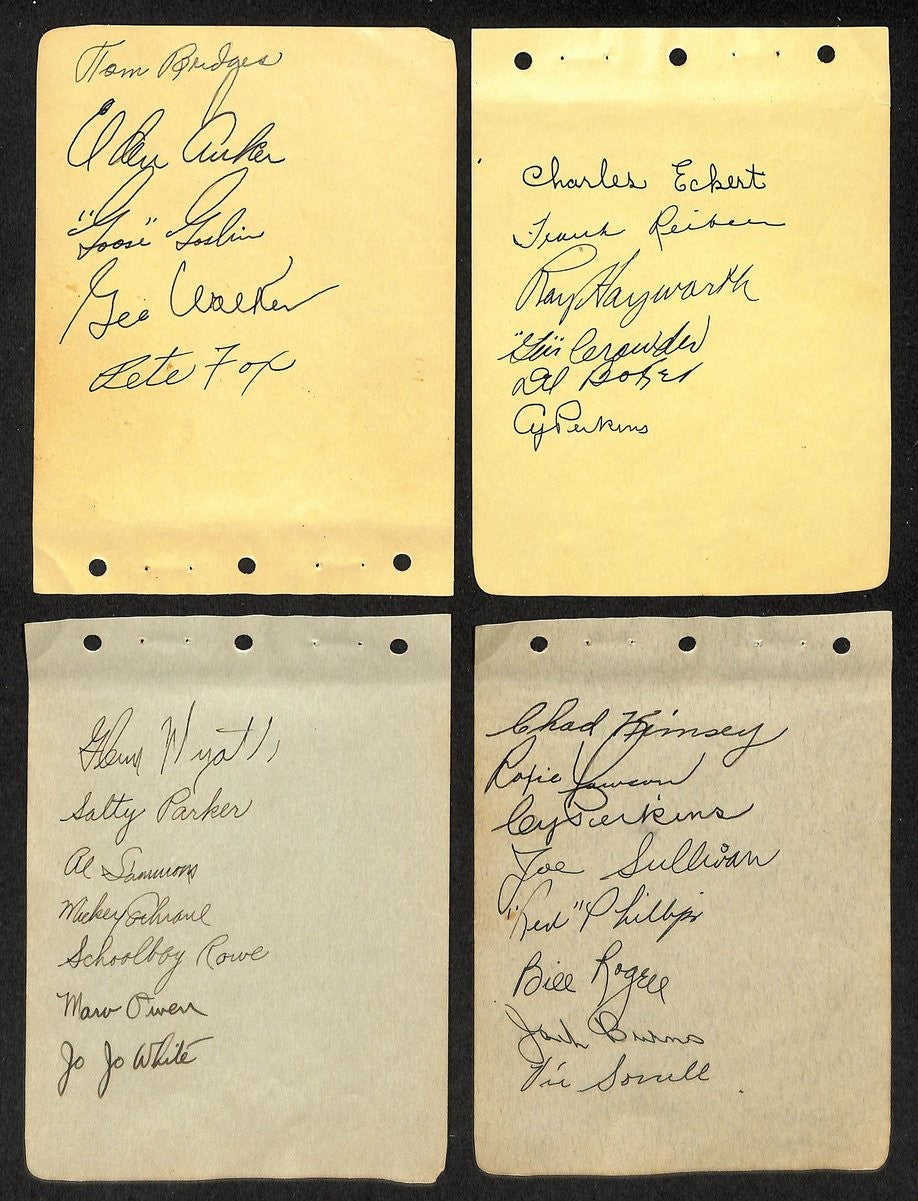 Tom Bridges
Elden Auker
"Goose" Goslin
Gee Walker
Pete Fox
Charles Eckert
Frank Reiber
Ray Hayworth
"Gen" Crowder
Del Baker
Cy Perkins
Glenn Wyatt,
Salty Parker
Al Simmons
Mickey Cochrane
Schoolboy Rowe
Marv Owen
Jo Jo White
Chad Kimsey
Roxie Lawson
Cy Perkins
Joe Sullivan
"Red" Phillips
Bill Rogell
Jack Burns
Vic Sorrell